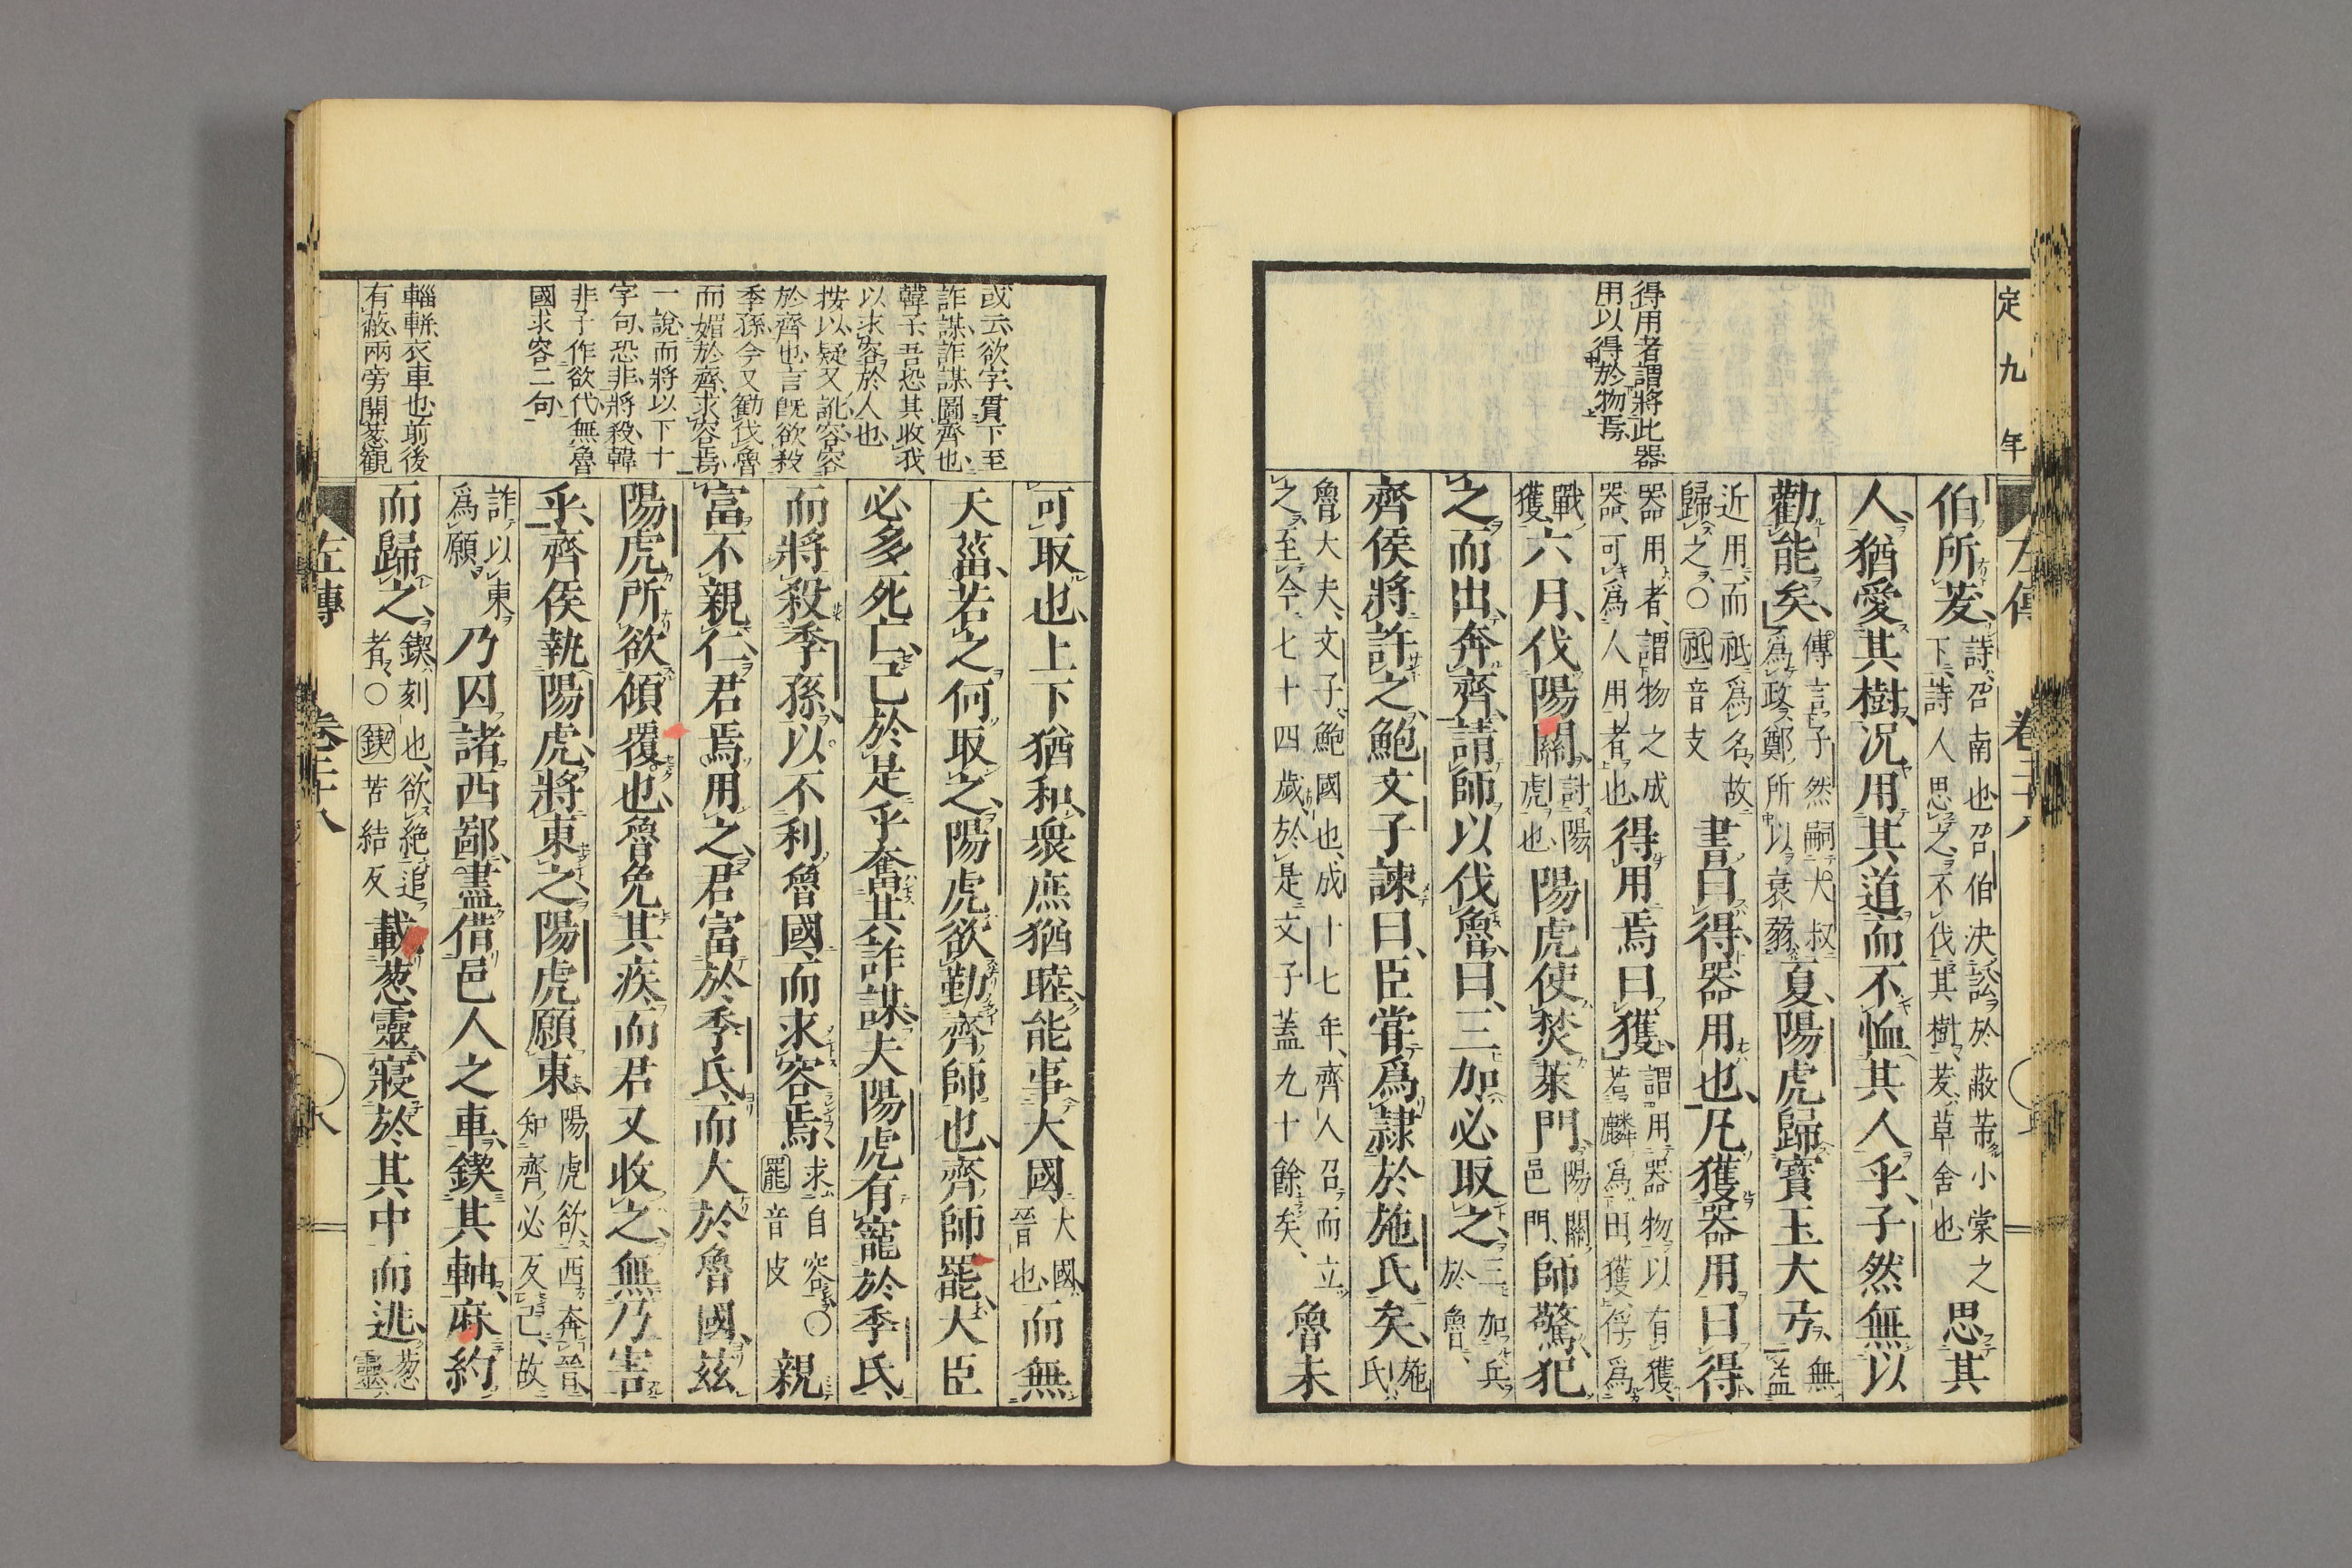 定九年
得用者謂將此器
用以得於物焉
伯所茇、詩召南也、召伯決訟於蔽芾小棠之下、詩人思之、不伐其樹、茇、草舍也、思其
人、猶愛其樹、况用其道而不恤其人乎、子然無以
勸能矣、傳言子然嗣大叔爲政、鄭所以衰弱、夏、陽虎歸寶玉大弓、無益
近用、而祗爲名、故歸之、○祗音支書曰得、器用也、凡獲器用曰得、
器用者、謂物之成器、可爲人用者也、得用焉曰獲、謂用器物以有獲、若麟爲田獲、俘爲
戰獲、六月、伐陽關、討陽虎也、陽虎使焚萊門、陽關邑門、師驚、犯
之而出、奔齊、請師以伐魯、曰、三加必取之、三加兵於魯、
齊侯將許之、鮑文子諫曰、臣嘗爲隷於施氏矣、施氏
魯大夫、文子、鮑國也、成十七年、齊人召而立之、至今七十四歲、於是文子蓋九十餘矣、魯未
或云、欲字、貫下至
詐謀、詐謀、圖齊也、
韓子、吾恐其收我
以求容於人也
按以、疑又訛、容容
於齊也、言旣欲殺
季孫、今又勸伐魯
而媚於齊、求容焉、
一說、而將以下十
字句、恐非、將殺、韓
非子作欲代、無魯
國求容二句
輜輧、衣車也、前後
有蔽、兩旁開葱觀
可取也、上下猶和、衆庶猶睦、能事大國、大國晉也、而無
天菑、若之何取之、陽虎欲勤齊師也、齊師罷、大臣
必多死亡、已於是乎奮其詐謀、夫陽虎有寵於季氏、
而將殺季孫、以不利魯國、而求容焉、求自容、○罷音皮親
富不親仁、君焉用之、君富於季氏、而大於魯國、茲
陽虎所欲傾覆也、魯免其疾、而君又收之、無乃害
乎、齊侯執陽虎、將東之、陽虎願東、陽虎欲西奔晉、知齊必反己、故
詐以東爲願、乃囚諸西鄙、盡借邑人之車、鍥其軸、麻約
而歸之、鍥、刻也、欲絕追者、○鍥苦結反載葱靈、寢於其中而逃、葱靈
左傳　卷二十八